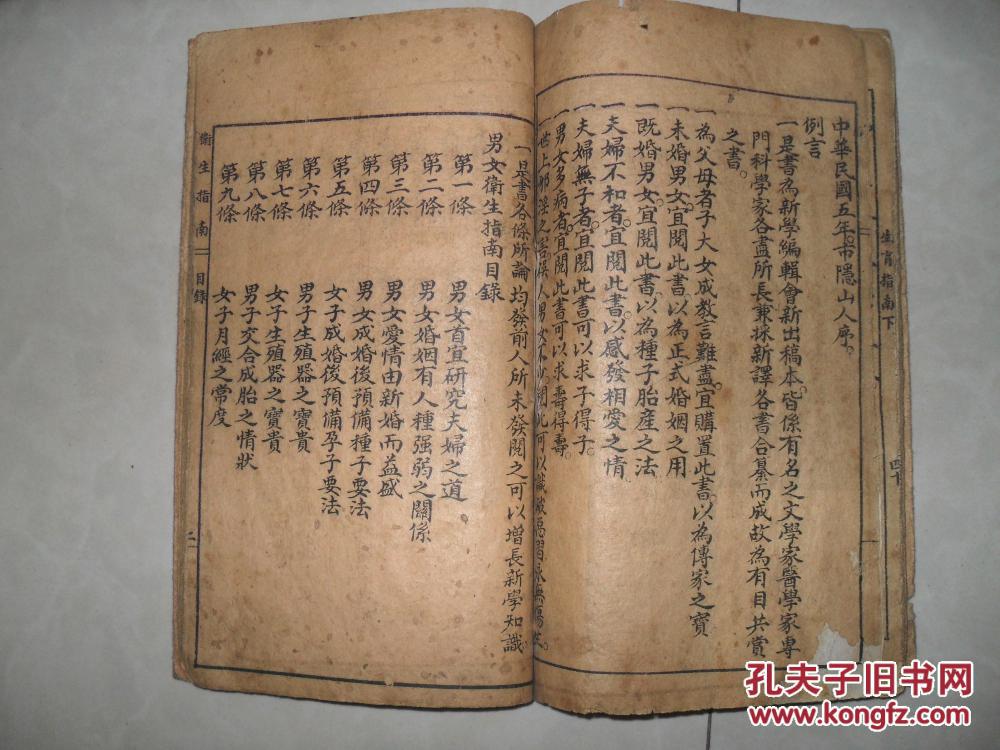 生育指南下
中華民國五年。市隱山人序。
例言
一是書為新學編輯會新出稿本。皆係有名之文學家醫學家專
門科學家各盡所長兼採新譯各書合纂而成故為有目共賞
之書。
一為父母者子大女成教言難盡。宜購置此書。以為傳家之寶
一未婚男女。宜閱此書。以為正式婚姻之用
一既婚男女。宜閱此書。以為種子胎產之法
一夫婦不和者。宜閱此書。以感發相愛之情
一夫婦無子者。宜閱此書可以求子得子。
一男女多病者。宜閱此書可以求壽得壽。
一世上邪淫之害誤人男女不少閱此可以識破惡習永無傷
一是書各條所論均發前人所未發閱之可以增長新學知識
男女衛生指南目錄
第一條 男女首宜研究夫婦之道
第二條 男女婚姻有人種强弱之關係
第三條 男女愛情由新婚而益盛
第四條 男女成婚後預備種子要法
第五條 女子成婚後預備孕子要法
第六條 男子生殖器之寶貴
第七條 女子生殖器之寶貴
第八條 男子交合成胎之情狀
第九條 女子月經之常度
衛生指南 目錄 二
孔夫子旧书网
www.kongfz.com